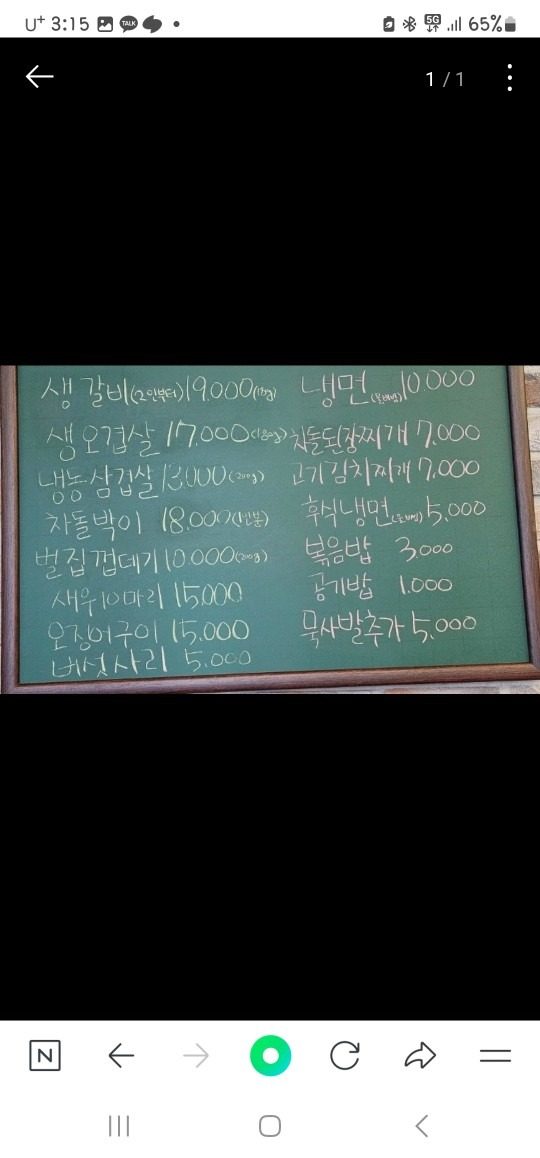 U+ 3:15 TALK 5G 65%
1 / 1
생갈비(2인부터)19,000
생오겹살 17,000(180g)
냉동삼겹살 13,000(200g)
차돌박이 18,000(1인분)
벌집껍데기 10,000(200g)
새우10마리 15,000
오징어구이 15,000
버섯사리 5,000
냉면(물비빔)10,000
차돌된장찌개 7,000
고기김치찌개 7,000
후식냉면 5,000
볶음밥 3,000
공기밥 1,000
묵사발추가 5,000
N